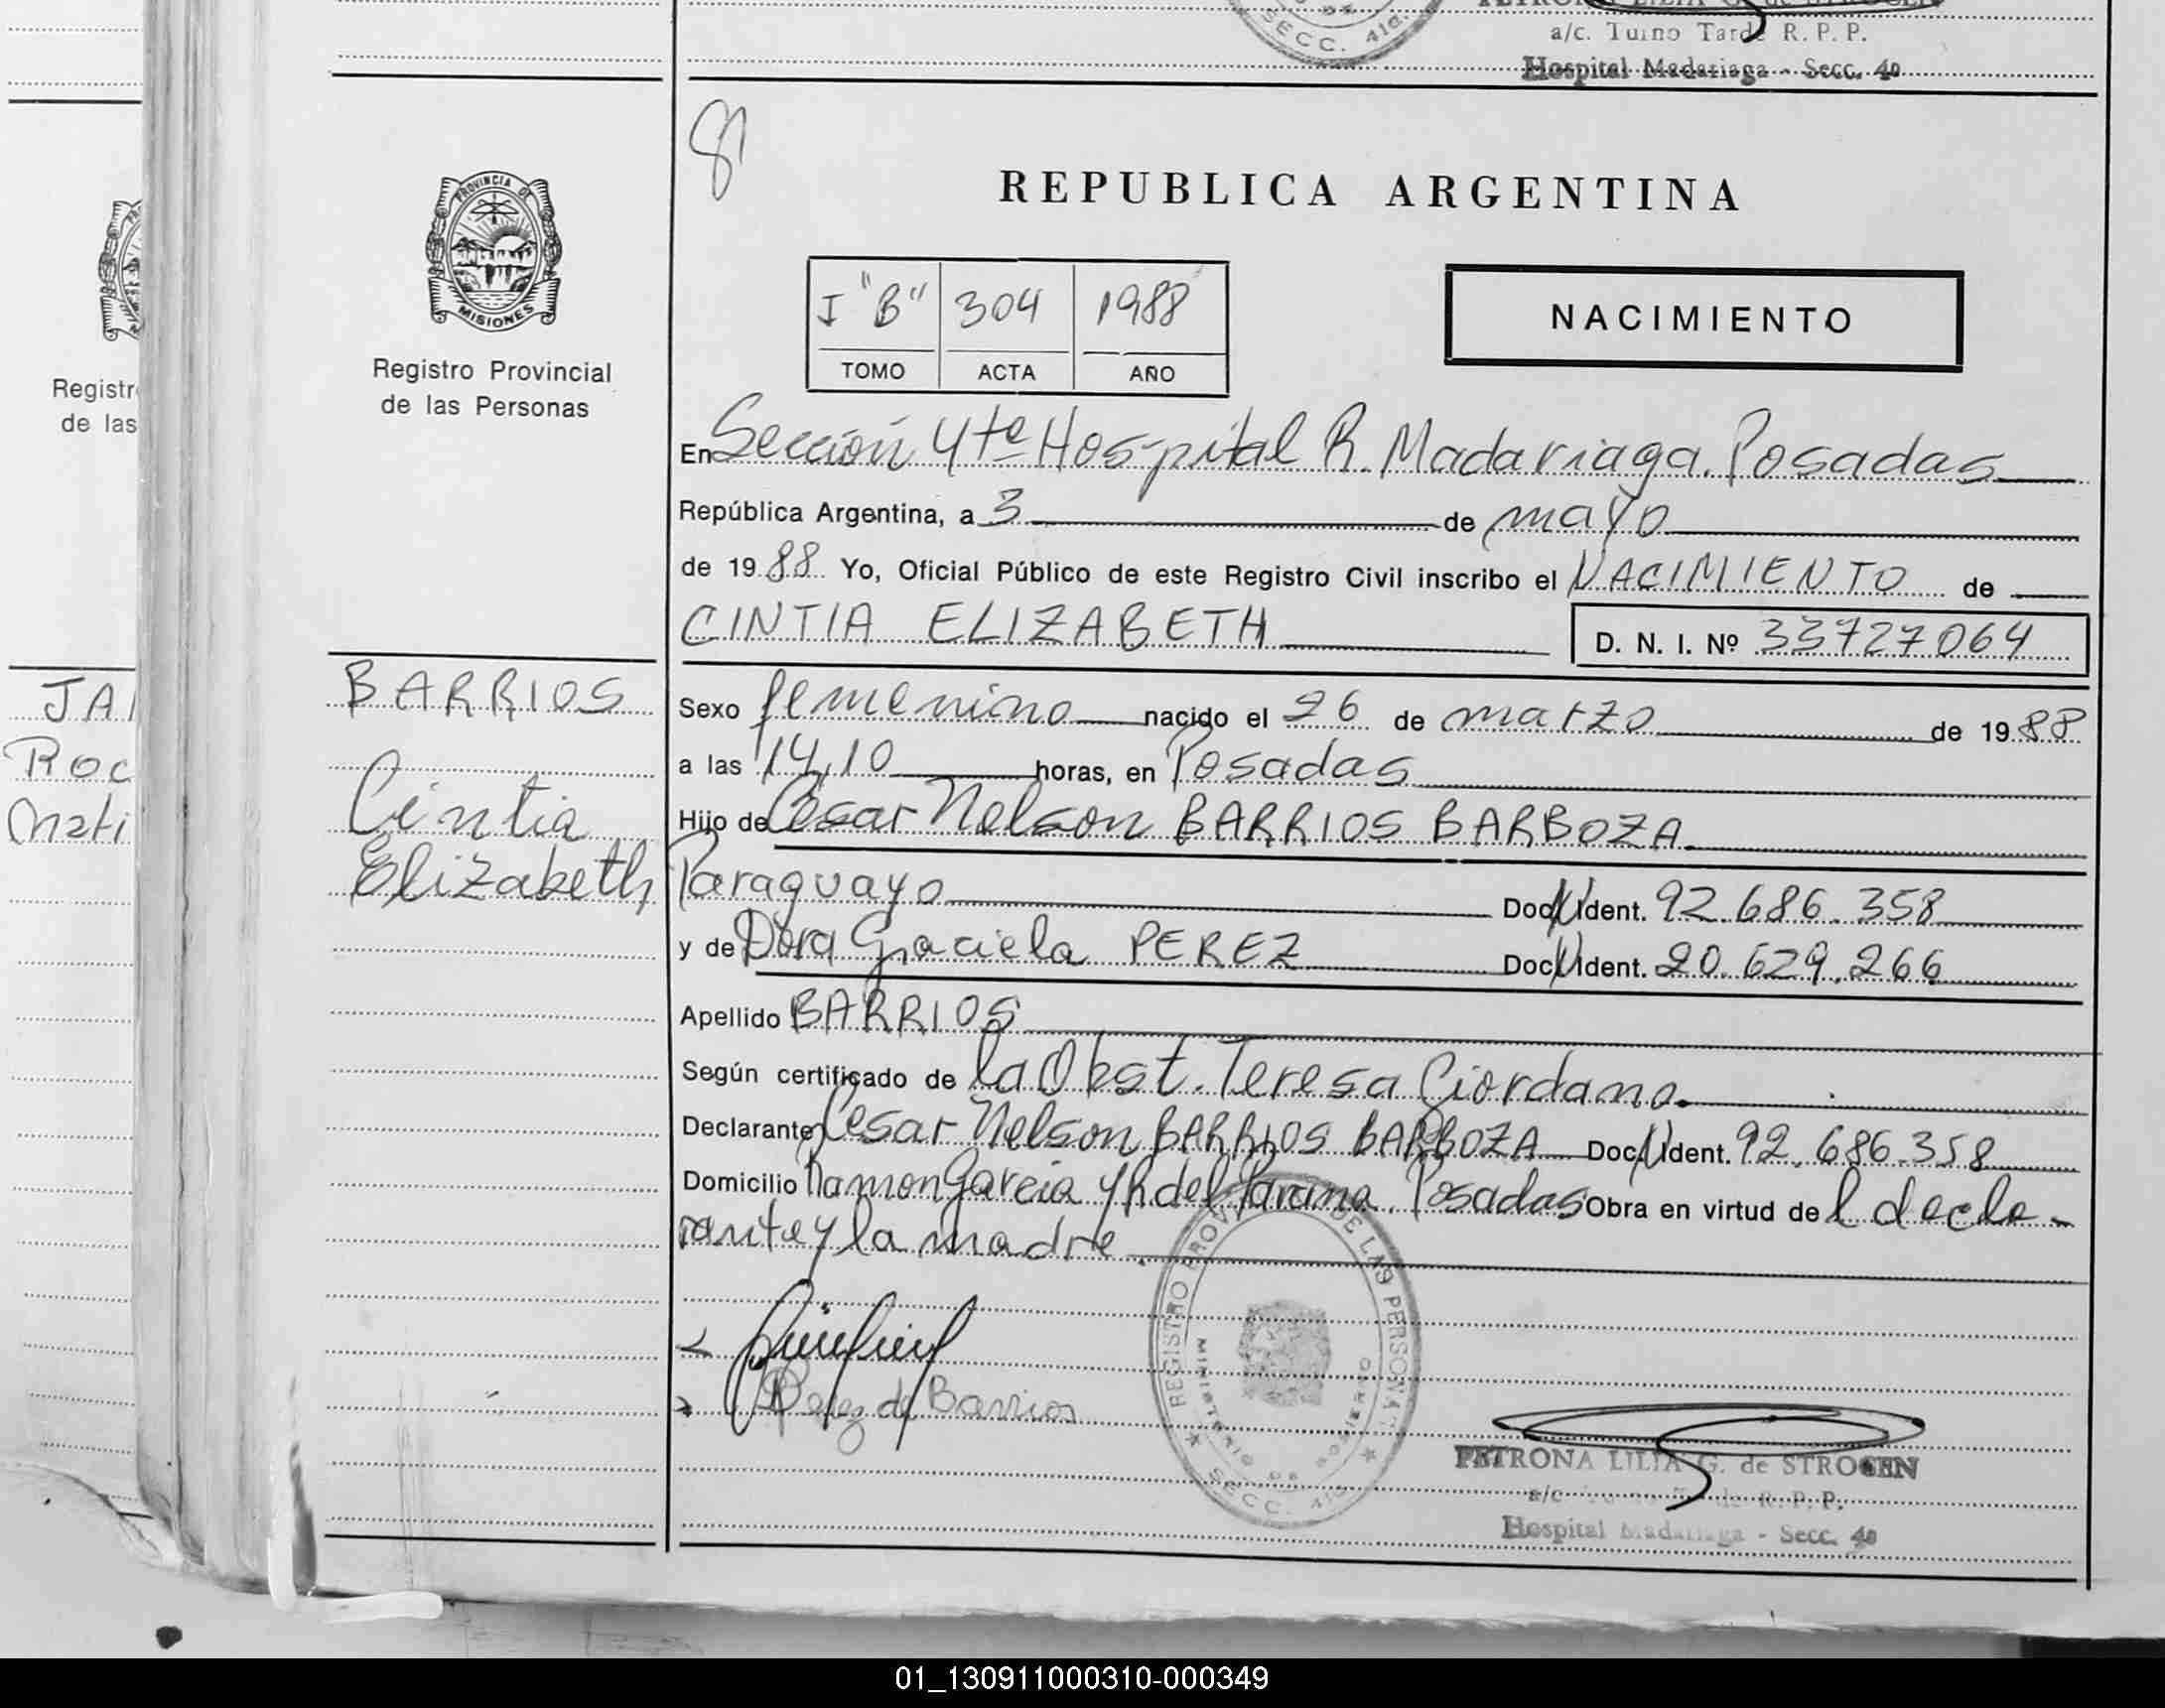 a/c. Turno Tarde R. P. P.
Hospital Madariaga - Secc. 4a
SECC. 4ta.
8
PROVINCIA DE
MISIONES
Registro Provincial
de las Personas
REPUBLICA ARGENTINA
I "B" 304 1988
TOMO ACTA AÑO
NACIMIENTO
En Sección 4ta Hospital R. Madariaga. Posadas
República Argentina, a 3 de mayo
de 1988 Yo, Oficial Público de este Registro Civil inscribo el NACIMIENTO de
CINTIA ELIZABETH D. N. I. Nº 33727064
BARRIOS
Cintia
Elizabeth
Sexo femenino nacido el 26 de marzo de 1988
a las 14,10 horas, en Posadas
Hijo de Cesar Nelson BARRIOS BARBOZA
Paraguayo Doc. N Ident. 92.686.358
y de Dora Graciela PEREZ Doc. N Ident. 20.629.266
Apellido BARRIOS
Según certificado de la Obst. Teresa Giordano.
Declarante Cesar Nelson BARRIOS BARBOZA Doc. N Ident. 92.686.358
Domicilio Ramon Garcia y R del Parana. Posadas Obra en virtud de l decla-
rante y la madre.
Perez de Barrios
REGISTRO PROV DE LAS PERSONAS
MINISTERIO DE GOBIERNO
SECC. 4ta
PETRONA LILIA G. de STROCEN
a/c de R. P. P.
Hospital Madariaga - Secc. 4a
Registr
de las
JA
Roc
Mati
01_130911000310-000349